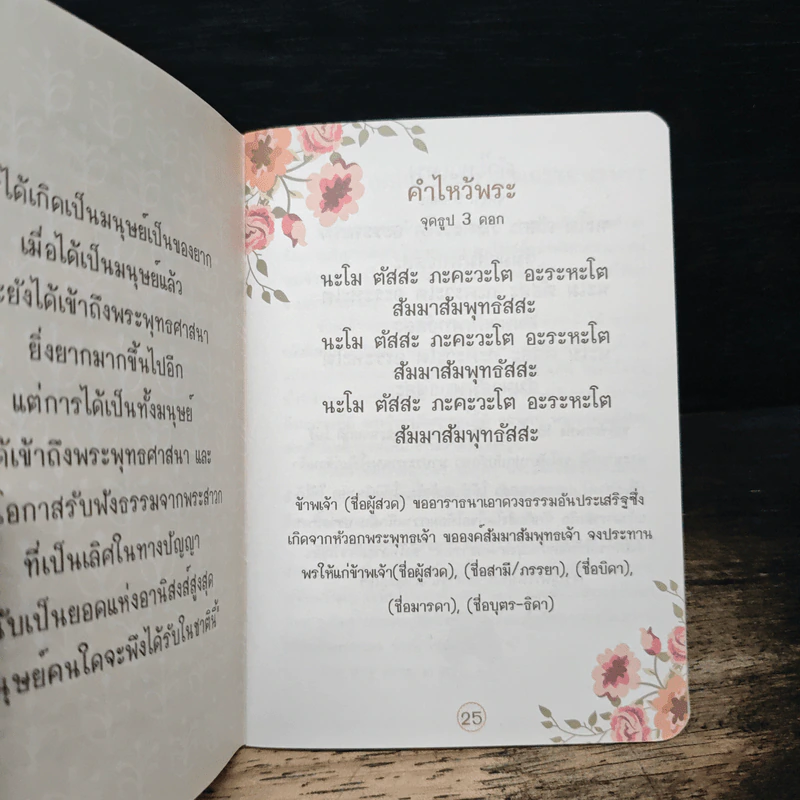 ได้เกิดเป็นมนุษย์เป็นของยาก
เมื่อได้เป็นมนุษย์แล้ว
ยังได้เข้าถึงพระพุทธศาสนา
ยิ่งยากมากขึ้นไปอีก
แต่การได้เป็นทั้งมนุษย์
ได้เข้าถึงพระพุทธศาสนา และ
โอกาสรับฟังธรรมจากพระสาวก
ที่เป็นเลิศในทางปัญญา
เป็นยอดแห่งอานิสงส์สูงสุด
คนใดจะพึงได้รับในชาตินี้
คำไหว้พระ
จุดธูป 3 ดอก
นะโม ตัสสะ ภะคะวะโต อะระหะโต
สัมมาสัมพุทธัสสะ
นะโม ตัสสะ ภะคะวะโต อะระหะโต
สัมมาสัมพุทธัสสะ
นะโม ตัสสะ ภะคะวะโต อะระหะโต
สัมมาสัมพุทธัสสะ
ข้าพเจ้า (ชื่อผู้สวด) ขออาราธนาเอาดวงธรรมอันประเสริฐซึ่ง
เกิดจากหัวอกพระพุทธเจ้า ขององค์สัมมาสัมพุทธเจ้า จงประทาน
พรให้แก่ข้าพเจ้า(ชื่อผู้สวด), (ชื่อสามี/ภรรยา), (ชื่อบิดา),
(ชื่อมารดา), (ชื่อบุตร-ธิดา)
25